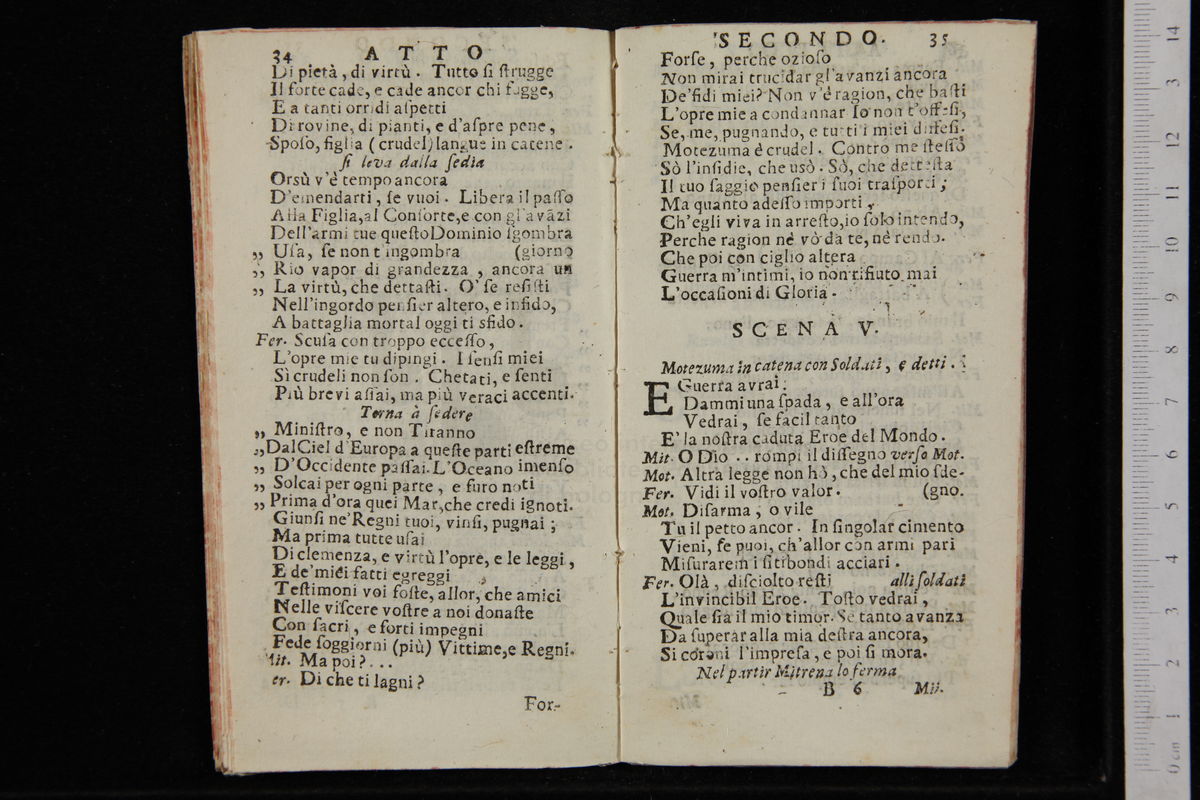 34 ATTO
Di pietà, di virtù. Tutto ſi ſtrugge
Il forte cade, e cade ancor chi fugge,
E a tanti orridi aſpetti
Di rovine, di pianti, e d'aſpre pene,
Spoſo, figlia (crudel) langue in catene.
ſi leva dalla ſedia
Orsù v'è tempo ancora
D'emendarti, ſe vuoi. Libera il paſſo
Alla Figlia, al Conſorte, e con gl'avāzi
Dell'armi tue queſto Dominio ſgombra
„ Uſa, ſe non t'ingombra (giorno
„ Rio vapor di grandezza, ancora un
„ La virtù, che dettaſti. O' ſe reſiſti
Nell'ingordo penſier altero, e infido,
A battaglia mortal oggi ti sfido.
Fer. Scuſa con troppo ecceſſo,
L'opre mie tu dipingi. I ſenſi miei
Sì crudeli non ſon. Chetati, e ſenti
Più brevi aſſai, ma più veraci accenti.
Torna à ſedere
„ Miniſtro, e non Tiranno
„ Dal Ciel d'Europa a queſte parti eſtreme
„ D'Occidente paſſai. L'Oceano imenſo
„ Solcai per ogni parte, e furo noti
„ Prima d'ora quei Mar, che credi ignoti.
Giunſi ne'Regni tuoi, vinſi, pugnai;
Ma prima tutte uſai
Di clemenza, e virtù l'opre, e le leggi,
E de'miei fatti egreggi
Teſtimoni voi foſte, allor, che amici
Nelle viſcere voſtre a noi donaſte
Con ſacri, e forti impegni
Fede ſoggiorni (più) Vittime, e Regni.
Mit. Ma poi?...
er. Di che ti lagni?
For-
SECONDO. 35
Forſe, perche ozioſo
Non mirai trucidar gl'avanzi ancora
De'fidi miei? Non v'è ragion, che baſti
L'opre mie a condannar Io non t'offeſi,
Se, me, pugnando, e tutti i miei difeſi.
Motezuma è crudel. Contro me ſteſſo
Sò l'inſidie, che usò. Sò, che deteſta
Il tuo ſaggio penſier i ſuoi traſporti;
Ma quanto adeſſo importi,
Ch'egli viva in arreſto, io ſolo intendo,
Perche ragion nè vò da te, nè rendo.
Che poi con ciglio altera
Guerra m'intimi, io non rifiuto mai
L'occaſioni di Gloria.
SCENA V.
Motezuma in catena con Soldati, e detti.
E Guerra avrai:
Dammi una ſpada, e all'ora
Vedrai, ſe facil tanto
E' la noſtra caduta Eroe del Mondo.
Mit. O Dio .. rompi il diſſegno verſo Mot.
Mot. Altra legge non hò, che del mio ſde-
Fer. Vidi il voſtro valor. (gno.
Mot. Diſarma, o vile
Tu il petto ancor. In ſingolar cimento
Vieni, ſe puoi, ch'allor con armi pari
Miſurarem i ſitibondi acciari.
Fer. Olà, diſciolto reſti alli ſoldati
L'invincibil Eroe. Toſto vedrai,
Quale ſia il mio timor. Se tanto avanza
Da ſuperar alla mia deſtra ancora,
Si coroni l'impreſa, e poi ſi mora.
Nel partir Mitrena lo ferma
B 6 Mit.
14
13
12
11
10
9
8
7
6
5
4
3
2
1
0 cm